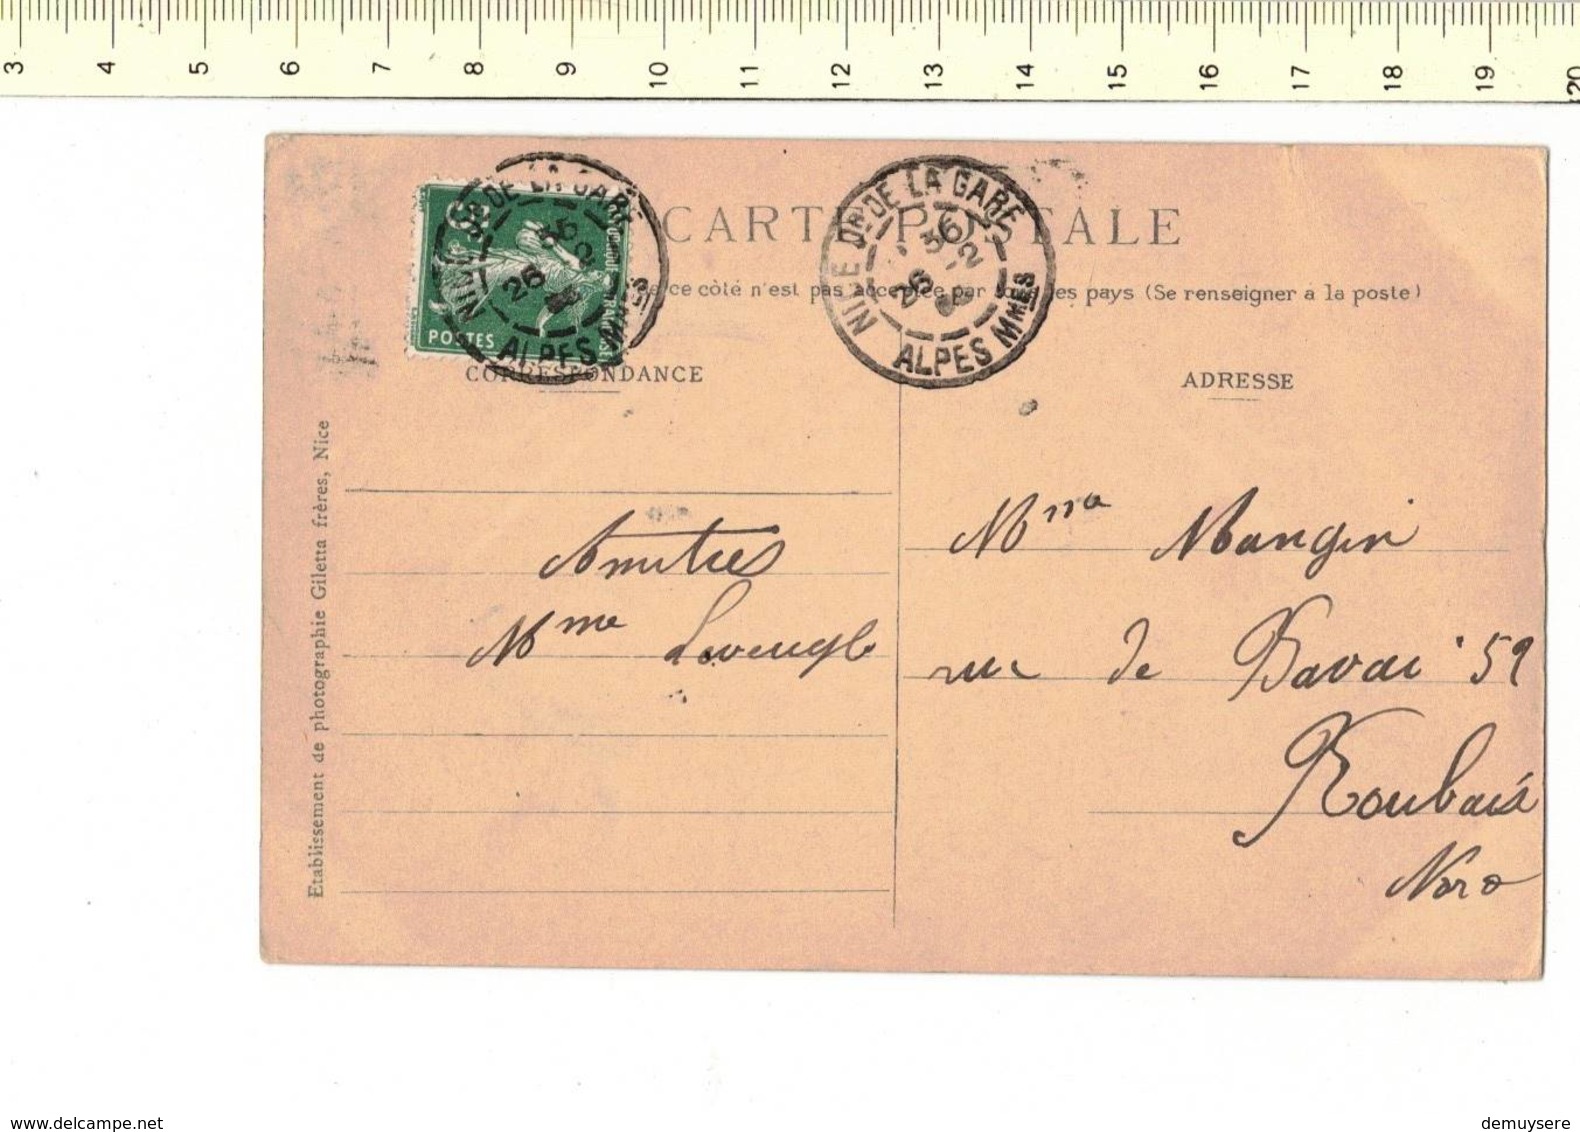 3 4 5 6 7 8 9 10 11 12 13 14 15 16 17 18 19 20
CARTE POSTALE
ce côté n'est pas acceptée par tous les pays (Se renseigner à la poste)
NICE Dr DE LA GARE
26 2
ALPES MMES
POSTES
NICE Dr DE LA GARE
26 2
ALPES MMES
CORRESPONDANCE
ADRESSE
Etablissement de photographie Giletta frères, Nice
Amitiés
Mme
Mme Mangin
rue de Bavai 59
Roubaix
Nord
www.delcampe.net
demuysere